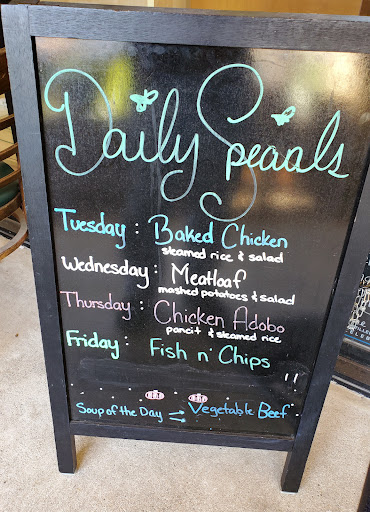 Daily Specials
Tuesday : Baked Chicken
steamed rice & salad
Wednesday : Meatloaf
mashed potatoes & salad
Thursday : Chicken Adobo
pancit & steamed rice
Friday : Fish n' Chips
Soup of the Day = Vegetable Beef